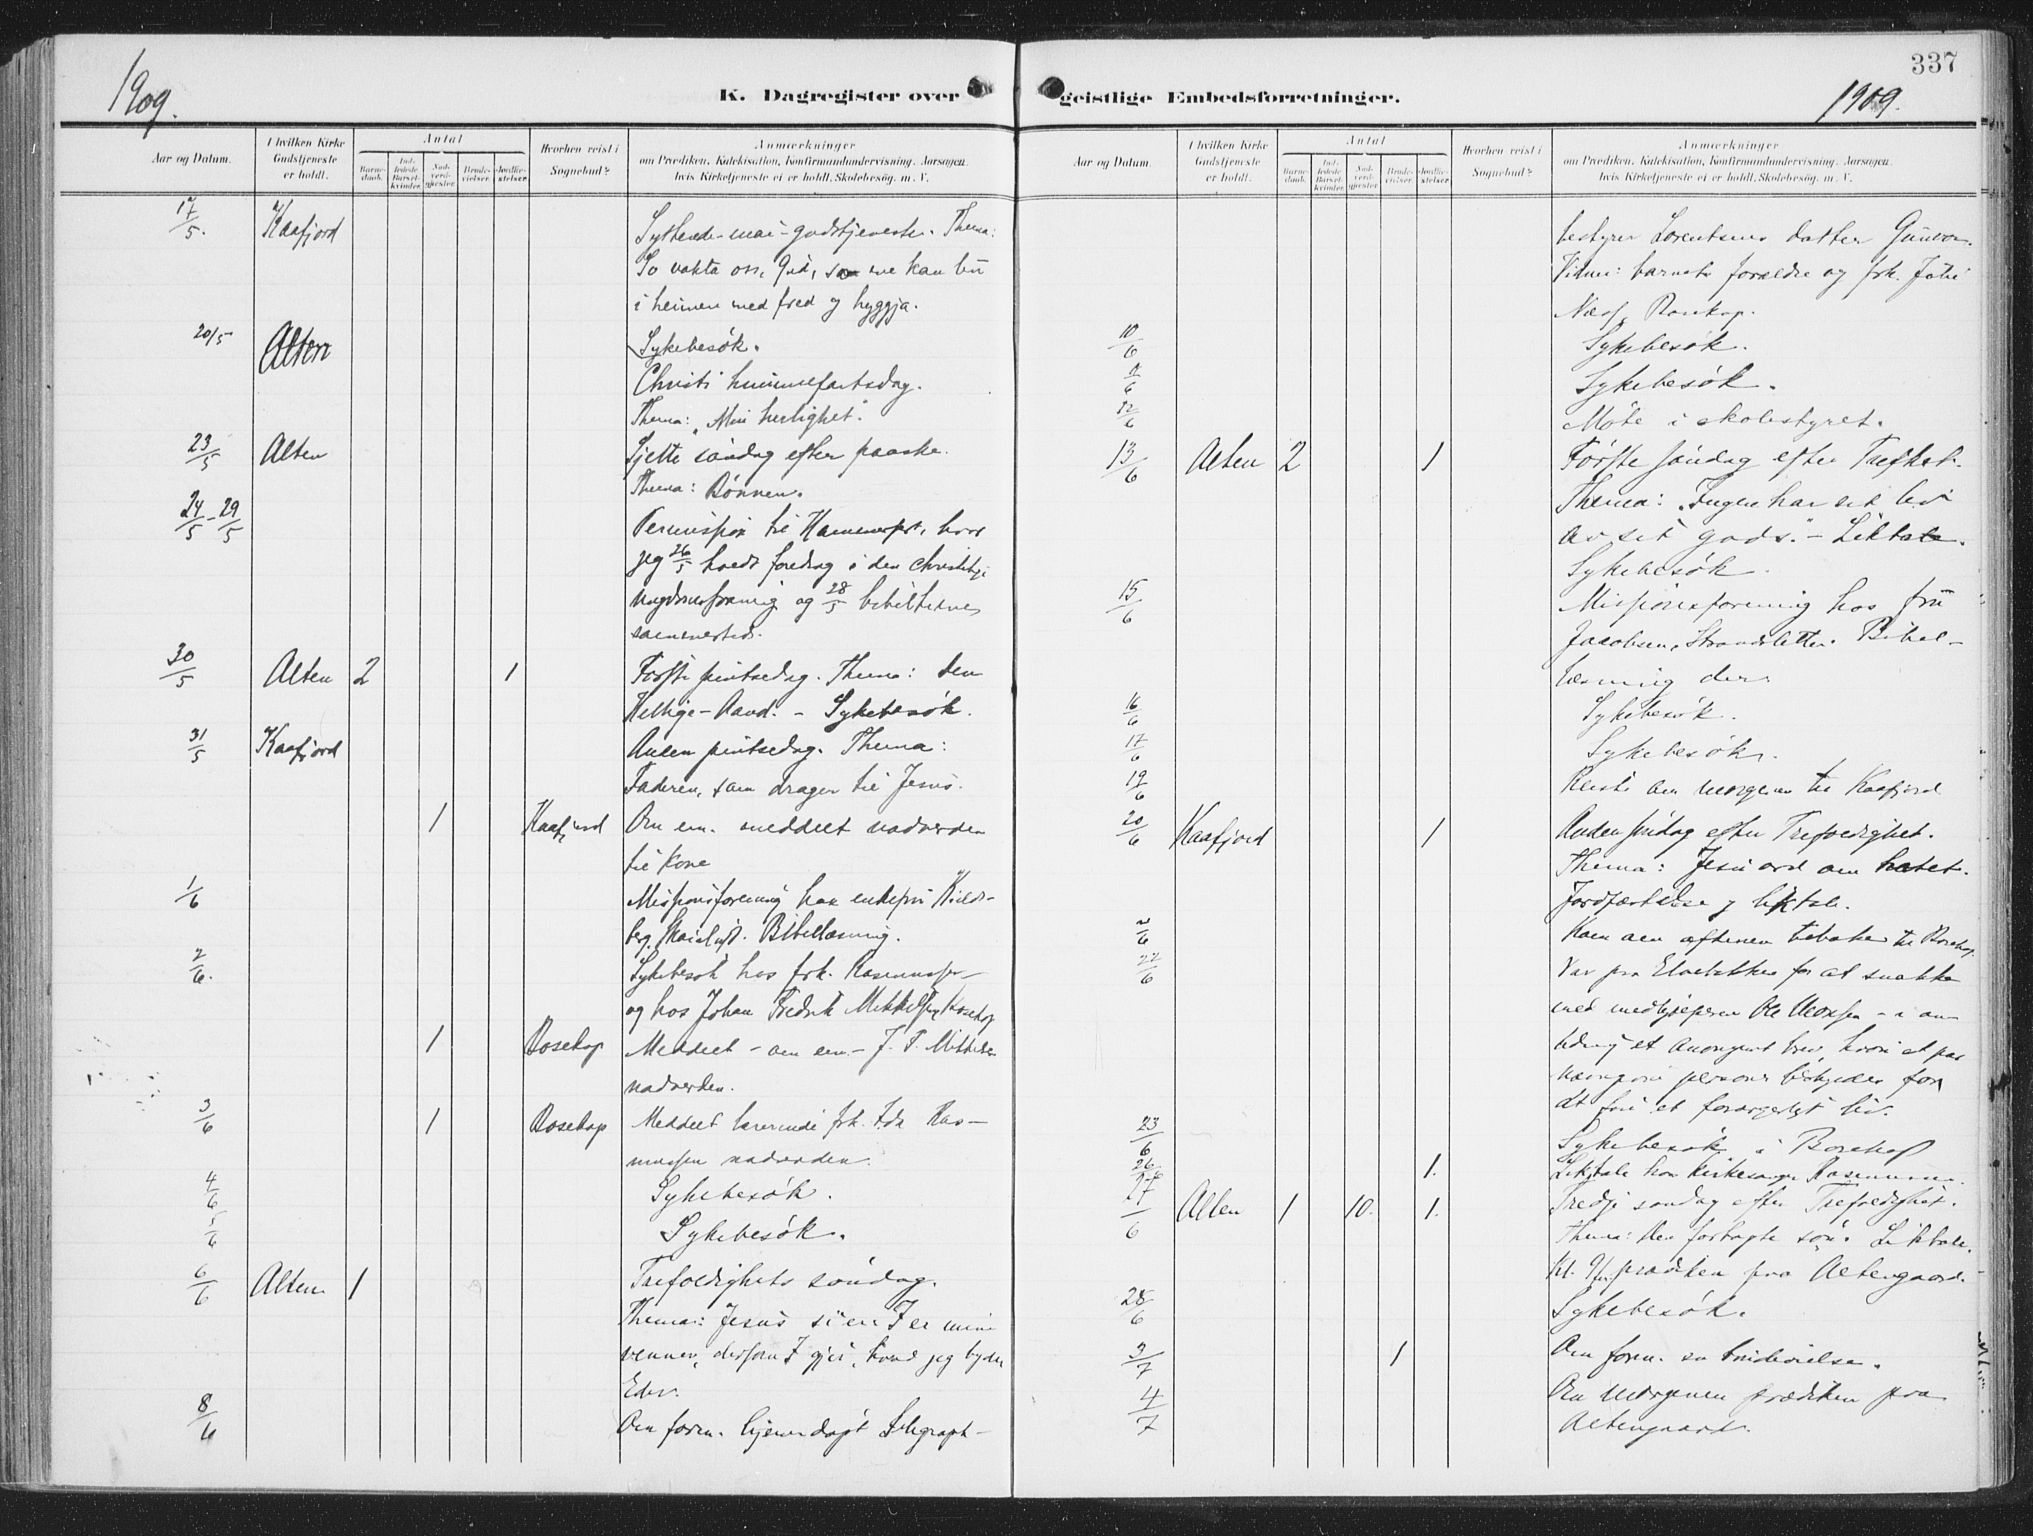 337
1909.
K. Dagregister over
Aar og Datum.
I hvilken Kirke Gudstjeneste er holdt.
Antal
Barnedaab.
Indledede Barselkvinder.
Nadverdgjester.
Brudevielser.
Jordfæstelser.
Hvorhen reist i Sognebud?
Anmærkninger
om Prædiken, Katekisation, Konfirmandundervisning, Aarsagen,
hvis Kirketjeneste ei er holdt, Skolebesøg m. V.
17/5. Kaafjord Syttende-mai-gudstjeneste. Thema:
So vakta oss, Gud, so me kan bu
i heimen med fred og hyggja.
20/5 Alten Sykebesøk.
Christi himmelfartsdag.
Thema: "Min herlighet".
23/5 Alten Sjette søndag efter paaske.
Thema: Bønnen.
24/5 - 29/5 Permission til Hammerfest, hvor
jeg 26/5 holdt foredrag i den christelige
ungdomsforening og 28/5 bibeltime
sammesteds.
30/5 Alten 2 1 Første pintsedag. Thema: Den
Hellige-Aand. - Sykebesøk.
31/5 Kaafjord Anden pintsedag. Thema:
Faderen, som drager til Jesus.
1 Kaafjord Om em. meddelt nadverden
til kone
1/6 Missionsforening hos enkefru
Bibellæsning.
2/6. Sykebesøk hos frk. Rasmussen
og hos Johan Fredrik Mikkelsen, Bosekop
1 Bosekop Meddelt - om em. - J. F. Mikkelsen
nadverden.
3/6 1 Bosekop Meddelt lærerinde frk. Ida Ras-
mussen nadverden.
4/6 Sykebesøk.
5/6 Sykebesøk.
6/6 Alten 1 Trefoldighets søndag.
Thema: Jesus sier: I er mine
venner, dersom I gjør, hvad jeg byder
Eder.
8/6 Om form. hjemmedøpt telegraf-
geistlige Embedsforretninger.
1909.
Aar og Datum.
I hvilken Kirke Gudstjeneste er holdt.
Antal
Barnedaab.
Indledede Barselkvinder.
Nadverdgjester.
Brudevielser.
Jordfæstelser.
Hvorhen reist i Sognebud?
Anmærkninger
om Prædiken, Katekisation, Konfirmandundervisning, Aarsagen,
hvis Kirketjeneste ei er holdt, Skolebesøg m. V.
bestyrer Lorentsens datter Gunvor.
Vidner: barnets forældre og frk. Julie
Næss, Bosekop.
10/6 Sykebesøk.
11/6 Sykebesøk.
12/6 Møte i skolestyret.
13/6 Alten 2 1 Første søndag efter Trefhet.
Thema: "Ingen har sit liv
av sit gods." - Liktale.
Sykebesøk.
15/6 Missionsforening hos fru
Jacobsen, Strandsletten. Bibel-
læsning der.
16/6 Sykebesøk.
17/6 Sykebesøk.
19/6 Reiste om morgenen til Kaafjord
20/6 Kaafjord 1 Anden søndag efter Trefoldighet.
Thema: Jesu ord om hatet.
Jordfæstelse og liktale.
Kom om aftenen tilbake til Bosekop.
22/6 Var paa Elvebakken for at snakke
med medhjelperen Ole Monsen - i an-
ledning et anonymt brev, hvori et par
navngivne personer beskyldes for
at føre et forargerligt liv.
23/6 Sykebesøk i Bosekop
26/6 1. Liktale hos kirkesanger Rasmussen.
27/6 Alten 1 10. 1. Tredje søndag efter Trefoldighet.
Thema: Den fortapte søn. Liktale.
Kl. præken paa Altengaard.
28/6 Sykebesøk.
3/7 1 Om form. en brudevielse.
4/7 Om morgenen prædiken paa
Altengaard.